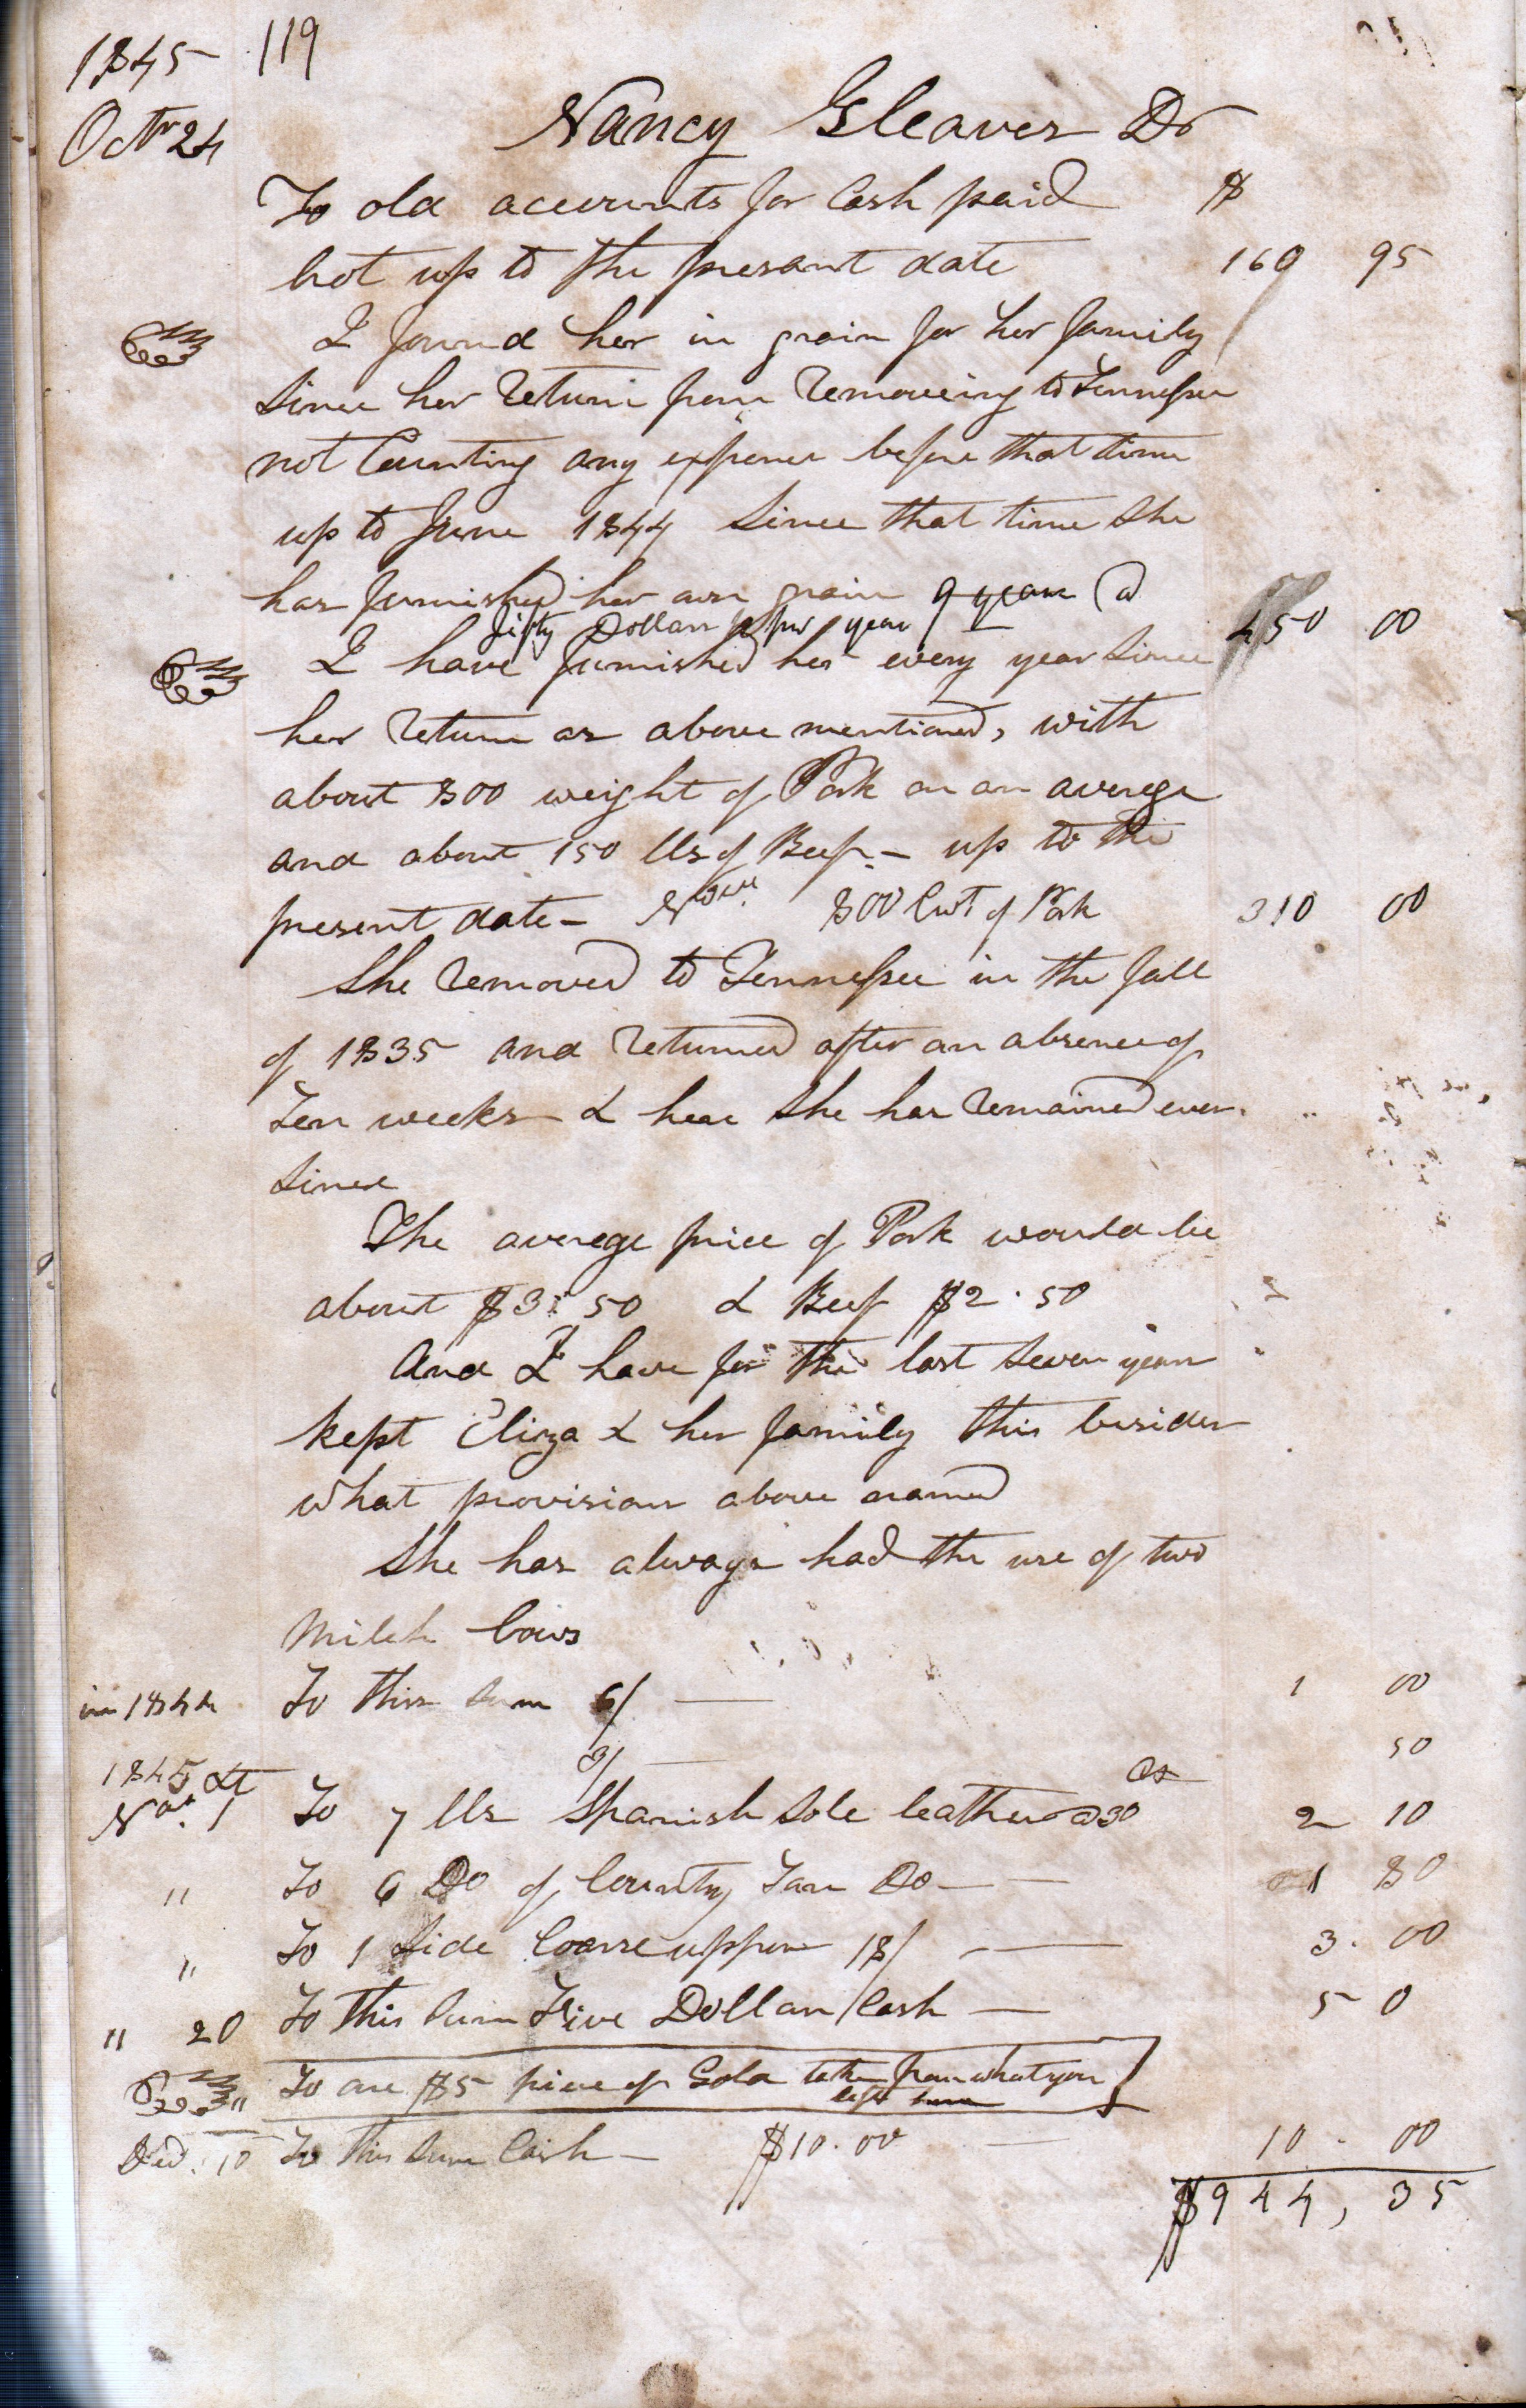 1845 119
Octr 24
Nancy Gleaves Dr
To old accounts for Cash paid $
hot up to the present date 160 95
I found her in grain for her family
Since her return from removeing to Tennessee
not Counting any expence before that time
up to June 1844 Since that time She
has furnished her own grain 9 years @
fifty Dollars per year 450 00
I have furnished her every year Since
her return as above mentioned, with
about 800 weight of Pork on an averege
and about 150 lbs of Beef - up to the
present date - 800 Cwt of Pork 310 00
She removed to Tennessee in the fall
of 1835 and returned after an absence of
Ten weeks & hear She has remained ever
Since
The averege price of Pork would be
about $3.50 & Beef $2.50
And I have for the last Seven years
kept Eliza & her family this besides
what provision above named
She has always had the use of two
Milch Cows
in 1844 To this Sum 6/ 1 00
3/ 50
1845
Novr. 1 To 7 lbs Spanish Sole leather @ 30 Cts 2 10
" To 6 Do of Country Tan Do 1 80
" To 1 Side Coarse upper 18/ 3.00
" 20 To this Sum Five Dollars Cash 5 0
" To one $5 piece of Gold taken from what you
left
Decd. 10 To this Sum Cash - $10.00 10.00
$944,35